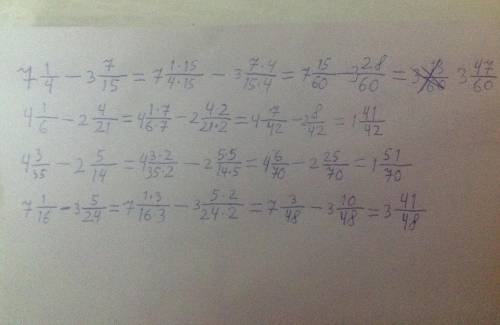 7 1/4 − 3 7/15 = 7 1·15/4·15 − 3 7·4/15·4 = 7 15/60 3 28/60 = 3 47/60
4 1/6 − 2 4/21 = 4 1·7/6·7 − 2 4·2/21·2 = 4 7/42 − 2 8/42 = 1 41/42
4 3/35 − 2 5/14 = 4 3·2/35·2 − 2 5·5/14·5 = 4 6/70 − 2 25/70 = 1 51/70
7 1/16 − 3 5/24 = 7 1·3/16·3 − 3 5·2/24·2 = 7 3/48 − 3 10/48 = 3 41/48